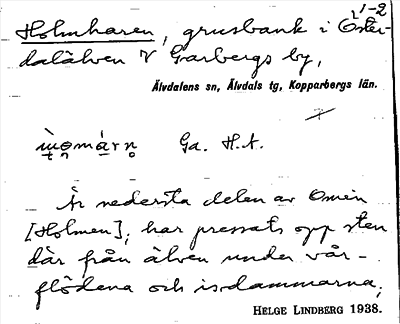 1-2
Holmharen, grusbank i Öster-
dalälven V Garbergs by,
Älvdalens sn, Älvdals tg, Kopparbergs län.
Ga. H.A.
Är nedersta delen av Omen
[Holmen]; har pressats opp sten
där från älven under vår-
flödena och isdammarna,
HELGE LINDBERG 1938.